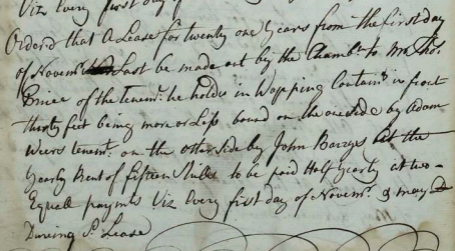 Viz Every first day of
Orderd that A Lease for twenty one Years from the first day
of Novemr. Last be made out by the Chambn. to Mr. Thos.
Brice of the tenemt. he holds in Wapping Containg. in front
thirty feet being more or Less bound on the one side by Adam
Weirs tenemt. on the other side by John Barrys at the
Yearly Rent of fifteen Shills. to be paid Half Yearly at two
Equall paymts. Viz Every first day of Novemr. & may
During Sd. Lease